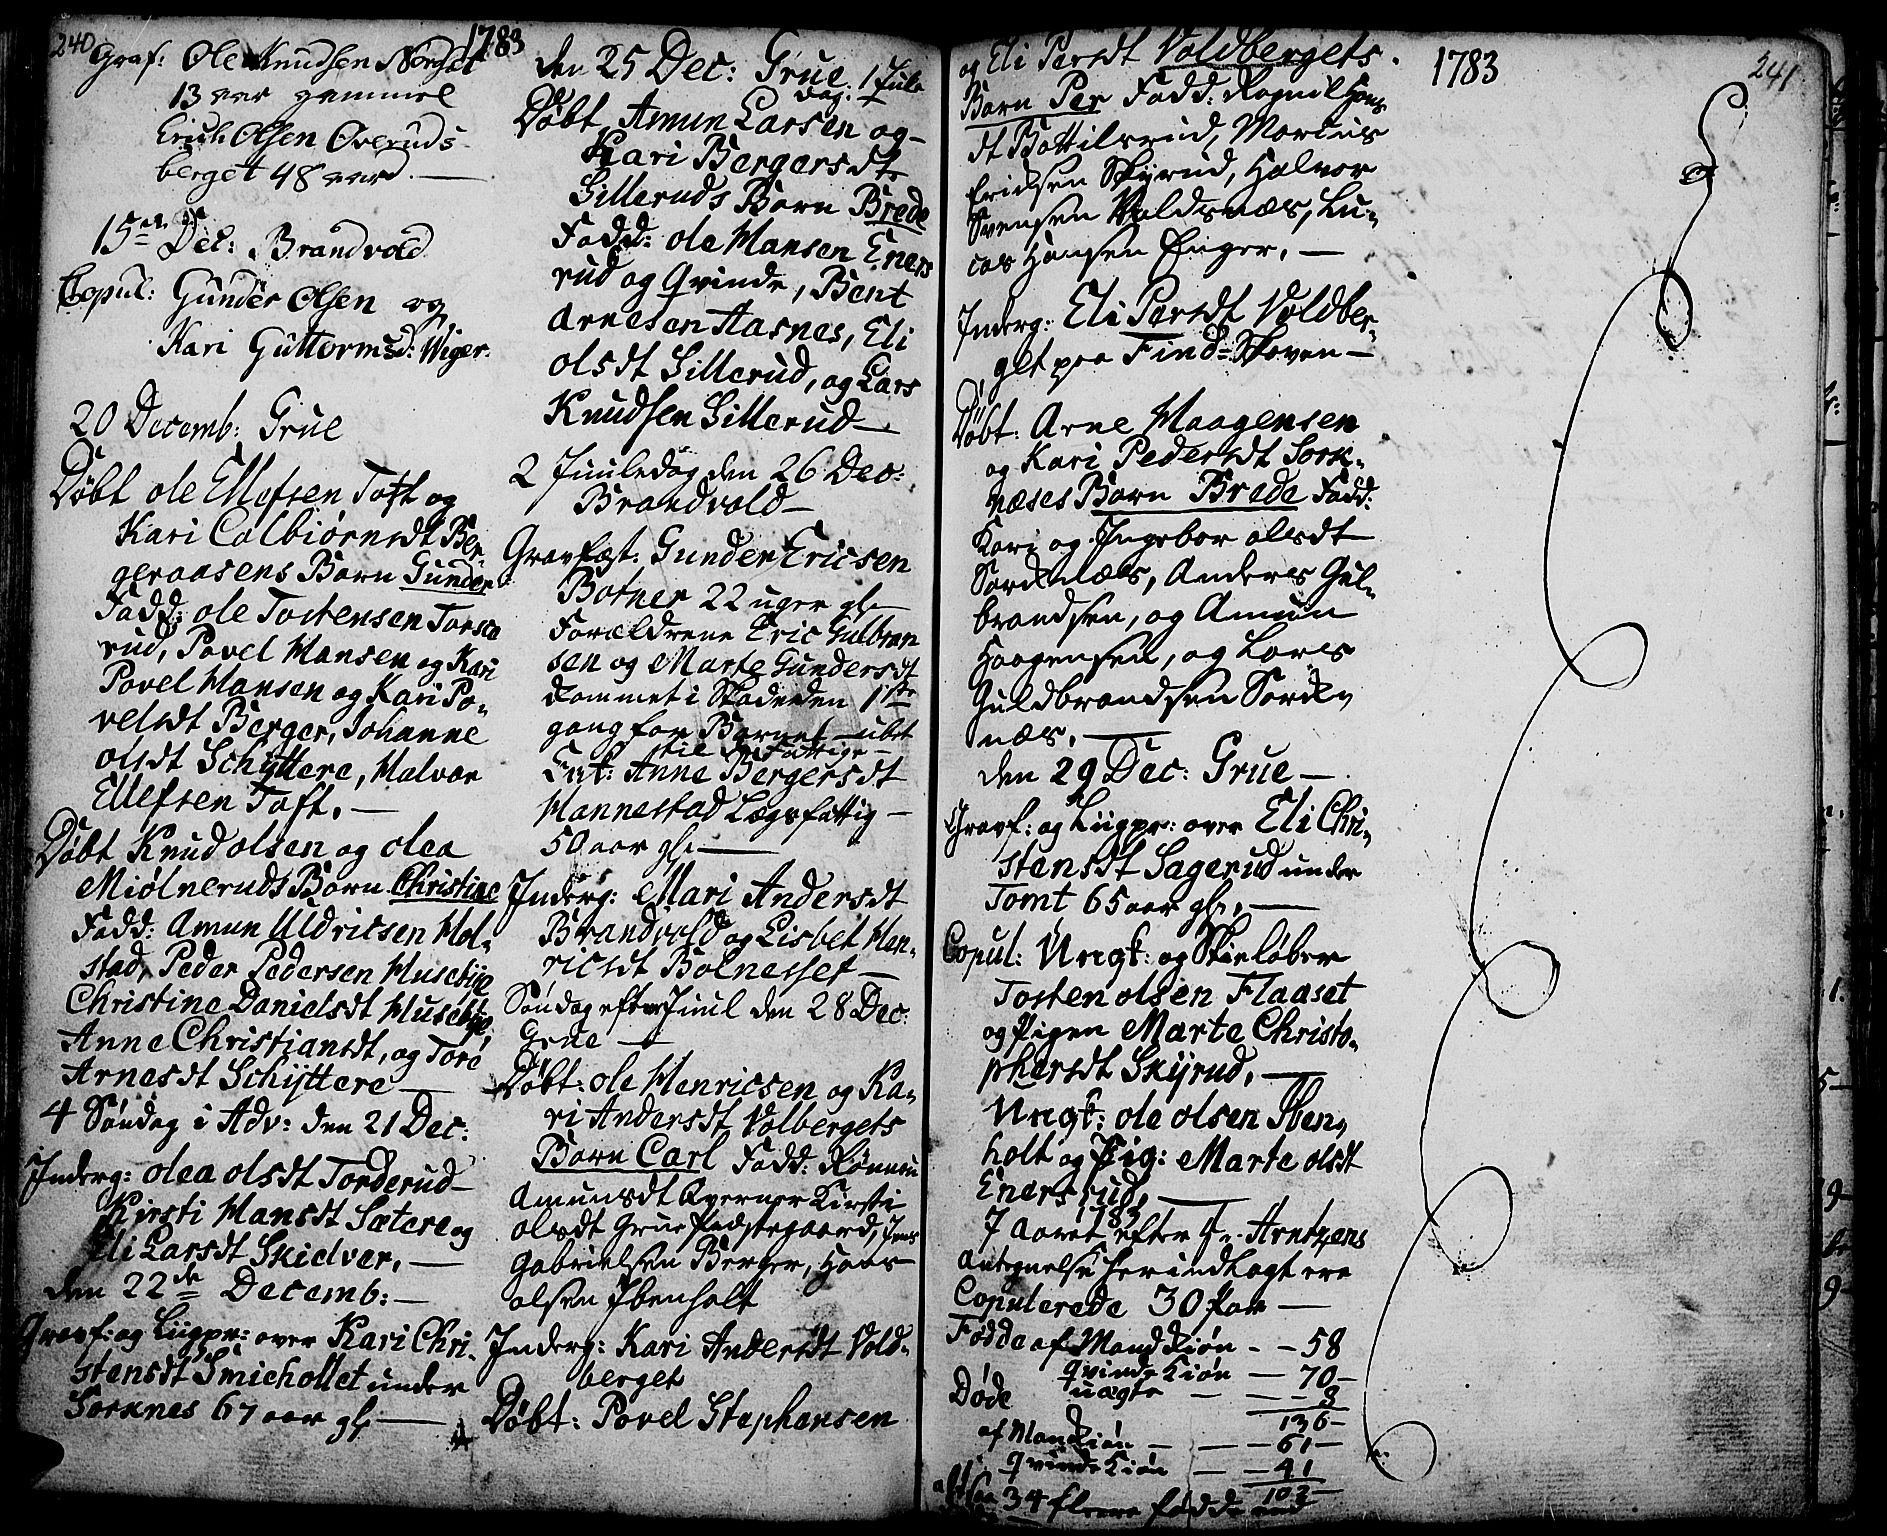 240
1783
Graf: Ole Knudsen Norset
13 aar gammel
Erich Olsen Øveruds-
berget 48 aar
15de Dec: Brandvold
Copul: Gunder Olsen og
Kari Guttormsd: Wiger.
20 Decemb: Grue
Døbt ole Ellefsen Toft og
Kari Colbiørnsdt Ber-
geraasens Barn Gunder
Fadd: ole Tostensen Torse
rud, Povel Hansen og Kari
Povel Hansen og Kari Po-
velsdt Berger, Johanne
olsdt Schÿttere, Halvor
Ellefsen Toft. —
Døbt Knud olsen og olea
Miølneruds Barn Christine
Fadd: Amun Uldricsen Hol-
stad, Peder Pedersen Husebÿe
Christine Danielsdt Husebÿe
Anne Christiansdt, og Tore
Arnesdt Schÿttere —
4 Søndag i Adv: den 21 Dec:
Inderg: olea olsdt Torderud
Kirsti Hansdt Sætere og
Eli Larsdt Skidver. —
den 22de Decemb: —
Gravf: og Liigpr: over Kari Chri-
stensdt Smichottet under
Sorknes 67 aar gl: —
den 25 Dec: Grue 1 Jule
dag.
Døbt Amun Larsen og
Kari Bergersdt
Silleruds Barn Brede
Fadd: ole Hansen Eners
rud og Qvinde, Bent
Arnesen Aasnes, Eli
olsdt Sillerud, og Lars
Knudsen Sillerud —
2 Juuledag den 26 Dec:
Brandvold —
Gravfæst: Gunder Ericsen
Botner 22 uger gl:
Forældrene Eric Gulbran
sen og Marte Gundersdt
kommet i Skade den 1ste
gang for Barnet — ubet
til de Fattige —
Graf: Anne Bergersdt
Hannestad Lægsfattig —
50 aar gl: —
Inderg: Mari Andersdt
Brandvold og Lisbet Hen-
ricsdt Bolnesset —
Søndag efter Juul den 28 Dec:
Grue —
Døbt: ole Henricsen og Ka-
ri Andersdt Volbergets
Barn Carl Fadd: Rønnau
Amunsdt Qverner Kirsti
olsdt Grue Præstegaard, Jens
Gabrielsen Berger, Hans
olsen Ibenholt
Inderg: Kari Andersdt Vold-
berget
Døbt: Povel Stephansen
1783
241
og Eli Persdt Voldbergets
Barn Per Fadd: Ragnil Hans
dt Bottilsrud, Marius
Ericksen Skÿrud, Halvor
Svensen Valdsnæs, Lu-
cas Hansen Enger. —
Inderg: Eli Persdt Voldber-
get paa Find-Skoven —
Døbt: Arne Haagensen
og Kari Pedersdt Sork-
næses Barn Brede Fadd:
Kari og Ingebor olsdt
Sorknæs, Anders Gul-
brandsen, og Amun
Haagensen, og Lars
Guldbrandsen Sork-
næs. —
den 29 Dec: Grue —
Gravf: og Liigpr: over Eli Chri-
stensdt Sagerud under
Tomt 65 aar gl: —
Copul: Ungk: og Skieløber
Tosten olsen Flaaset
og Pigen Marte Christo-
phersdt Skÿrud. —
Ungk: ole olsen Iben-
holt og Pig: Marte olsdt
Eners rud. —
I aaret 1783 efter Hr. Arntzens
Antegnelse her indlagt ere
Copulerede 30 Par —
Fødde af Mandkiøn - - 58
Qvindekiøn — 70 —
uægte — — 8
136 —
Døde
af Mandkiøn — — 61 —
Qvindekiøn — — 41
103
34 fleere fødde end